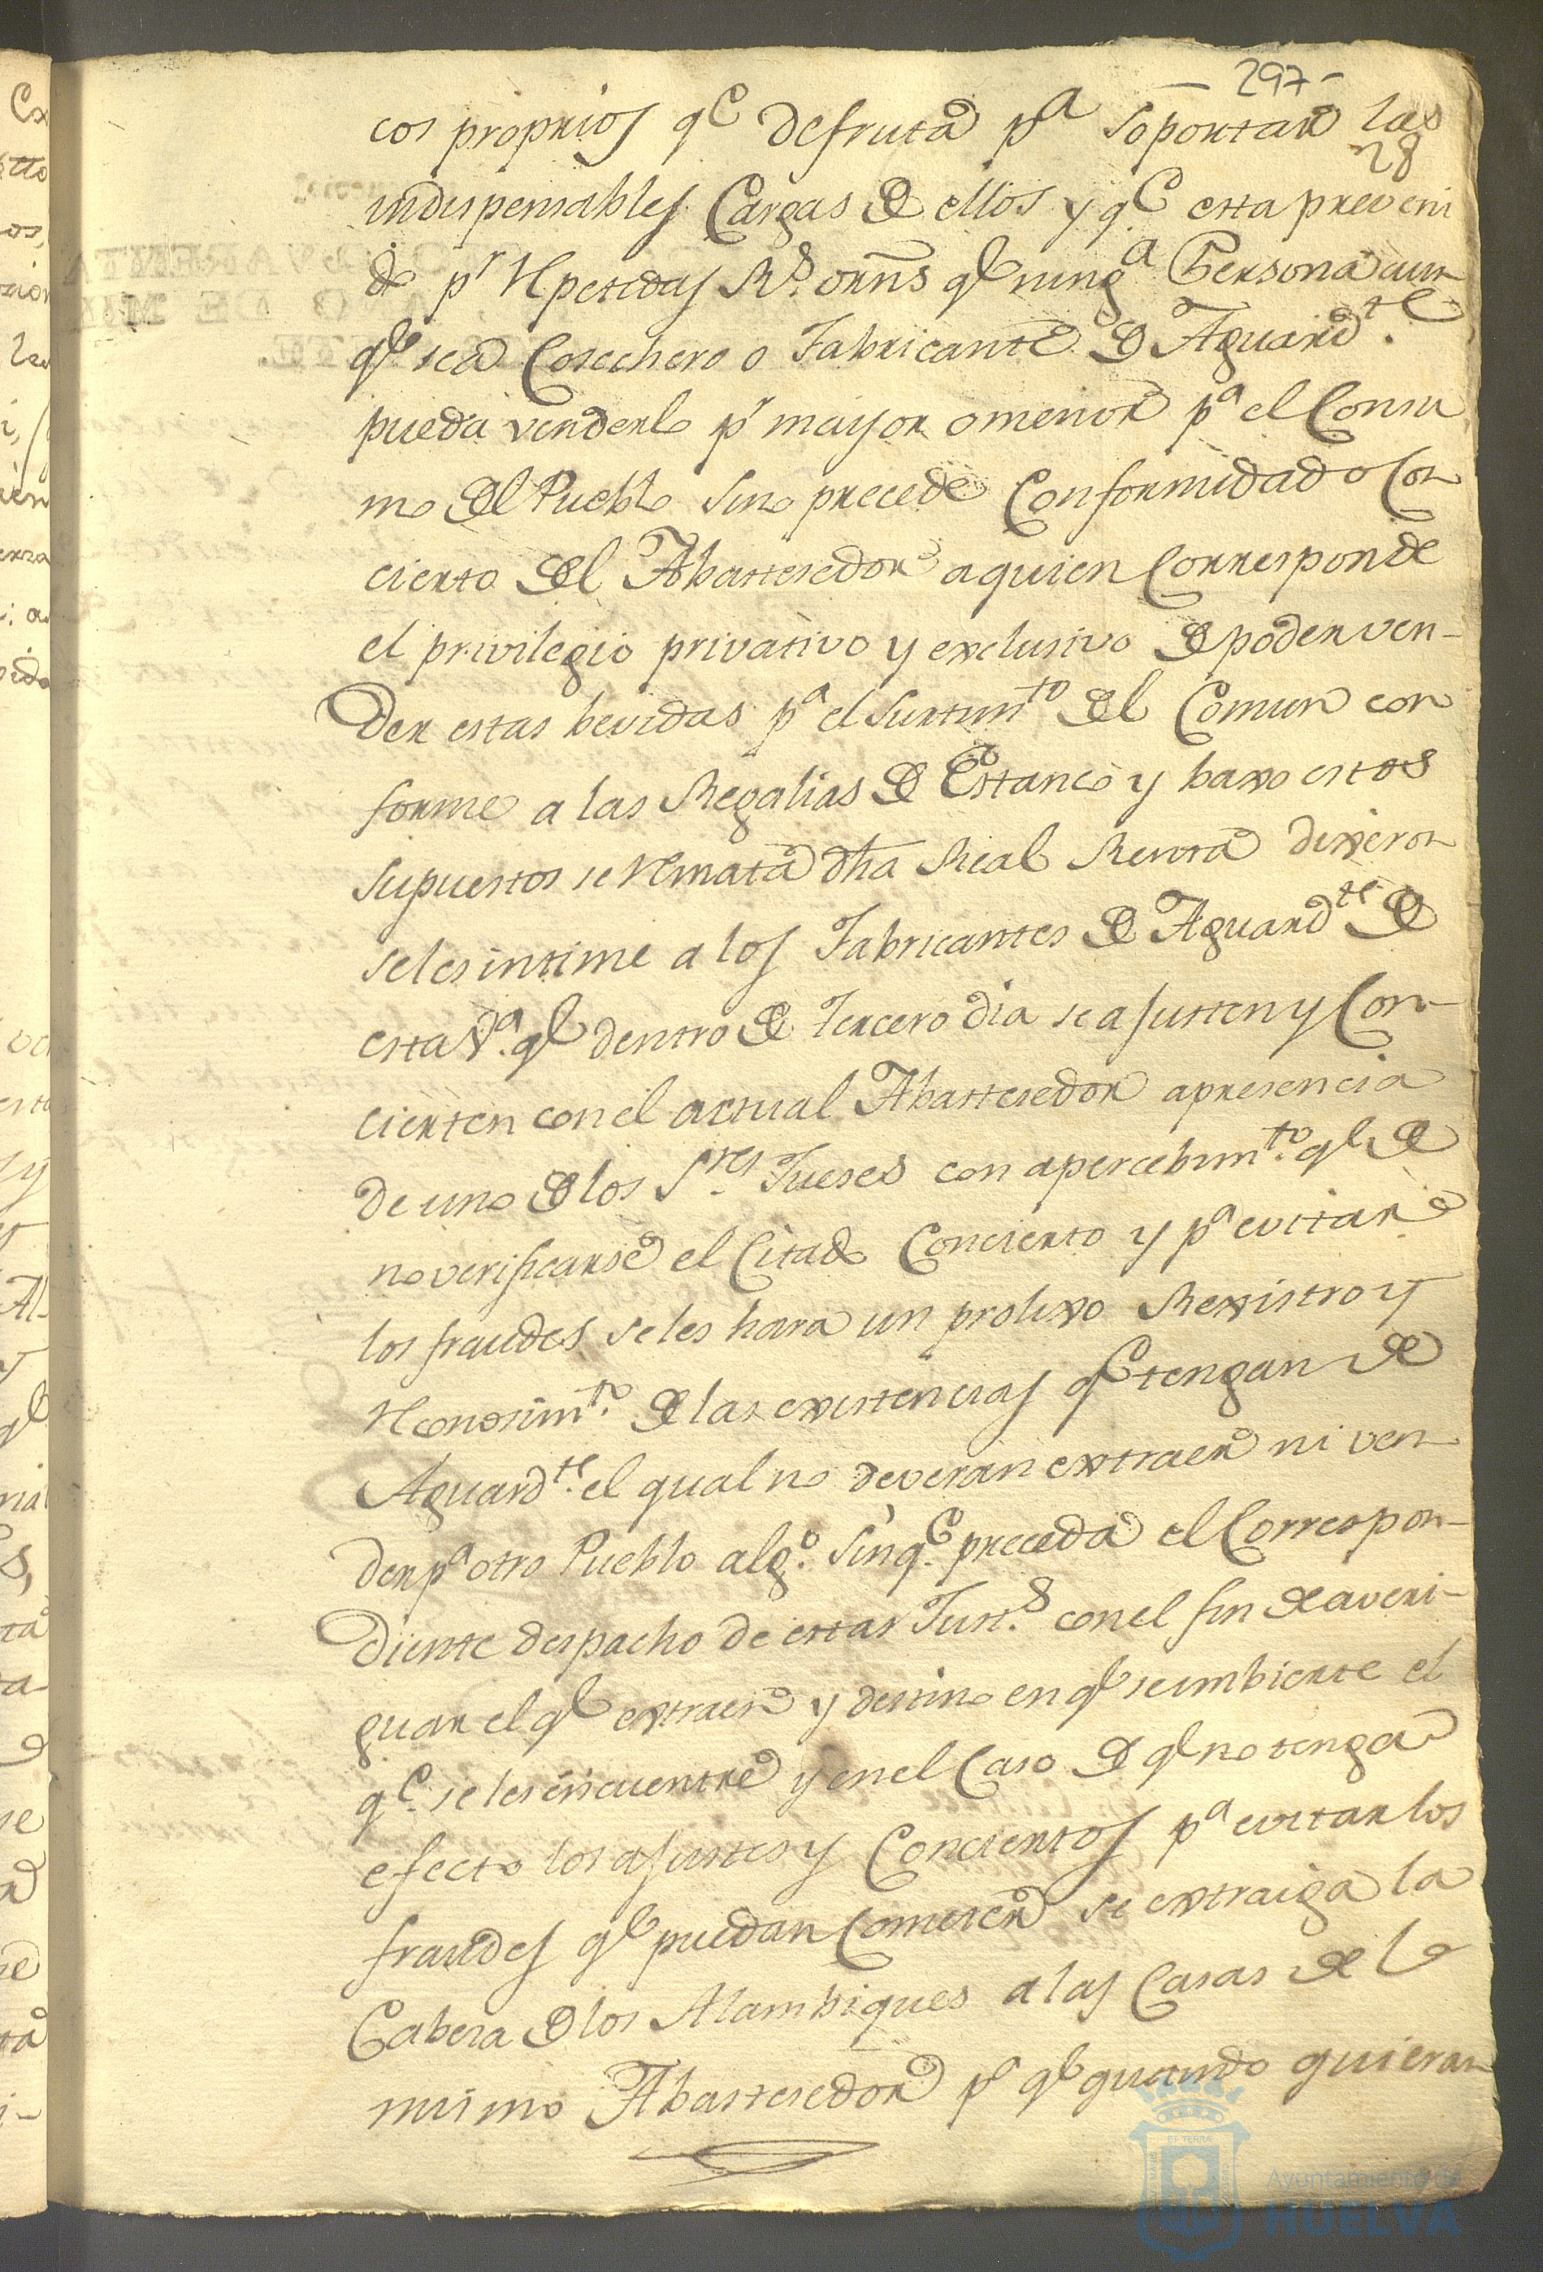 297-
28
cos proprios q.e defruta p.a soportar las
indispensables Cargas de ellos y q.e esta preveni
do p.r repetidas R.s orn̄s q.e ning.a Persona aun
q.e sea Cosechero o Fabricante de Aguard.te
pueda venderlo p.r mayor o menor p.a el Consu
mo del Pueblo sino precede Conformidad o Con
cierto del Abastesedor a quien Corresponde
el privilegio privativo y exclusivo de poder ven-
der estas bevidas p.a el surtim.to del Comun con
forme a las Regalias de Estanco y baxo estos
supuestos se remata dha Real Renta dixeron
seles intime a los Fabricantes de Aguard.te de
esta V.a q.e dentro de tercero dia se ajusten y Con-
cierten con el actual Abastesedor a presencia
de uno de los S.res Jueses con apercebim.to q.e de
no verificarse el Citado Concierto y p.a evitar
los fraudes seles hara un prolixo Rexistro y
reconosim.to de las existencias q.e tengan de
Aguard.te el qual no deveran extraer ni ven
der p.a otro Pueblo alg.o sin q.e preceda el Correspon-
diente despacho de estas Just.s con el fin de averi-
guar el q.e extraen y destino en q.e se imbierte el
q.e se les encuentre y en el Caso de q.e no tenga
efecto los ajustes y Conciertos p.a evitar los
fraudes q.e puedan Comeser se extraiga la
Cabesa de los Alambiques a las Casas de el
mismo Abastesedor p.a q.e quando quieran
Ayuntamiento de
HUELVA